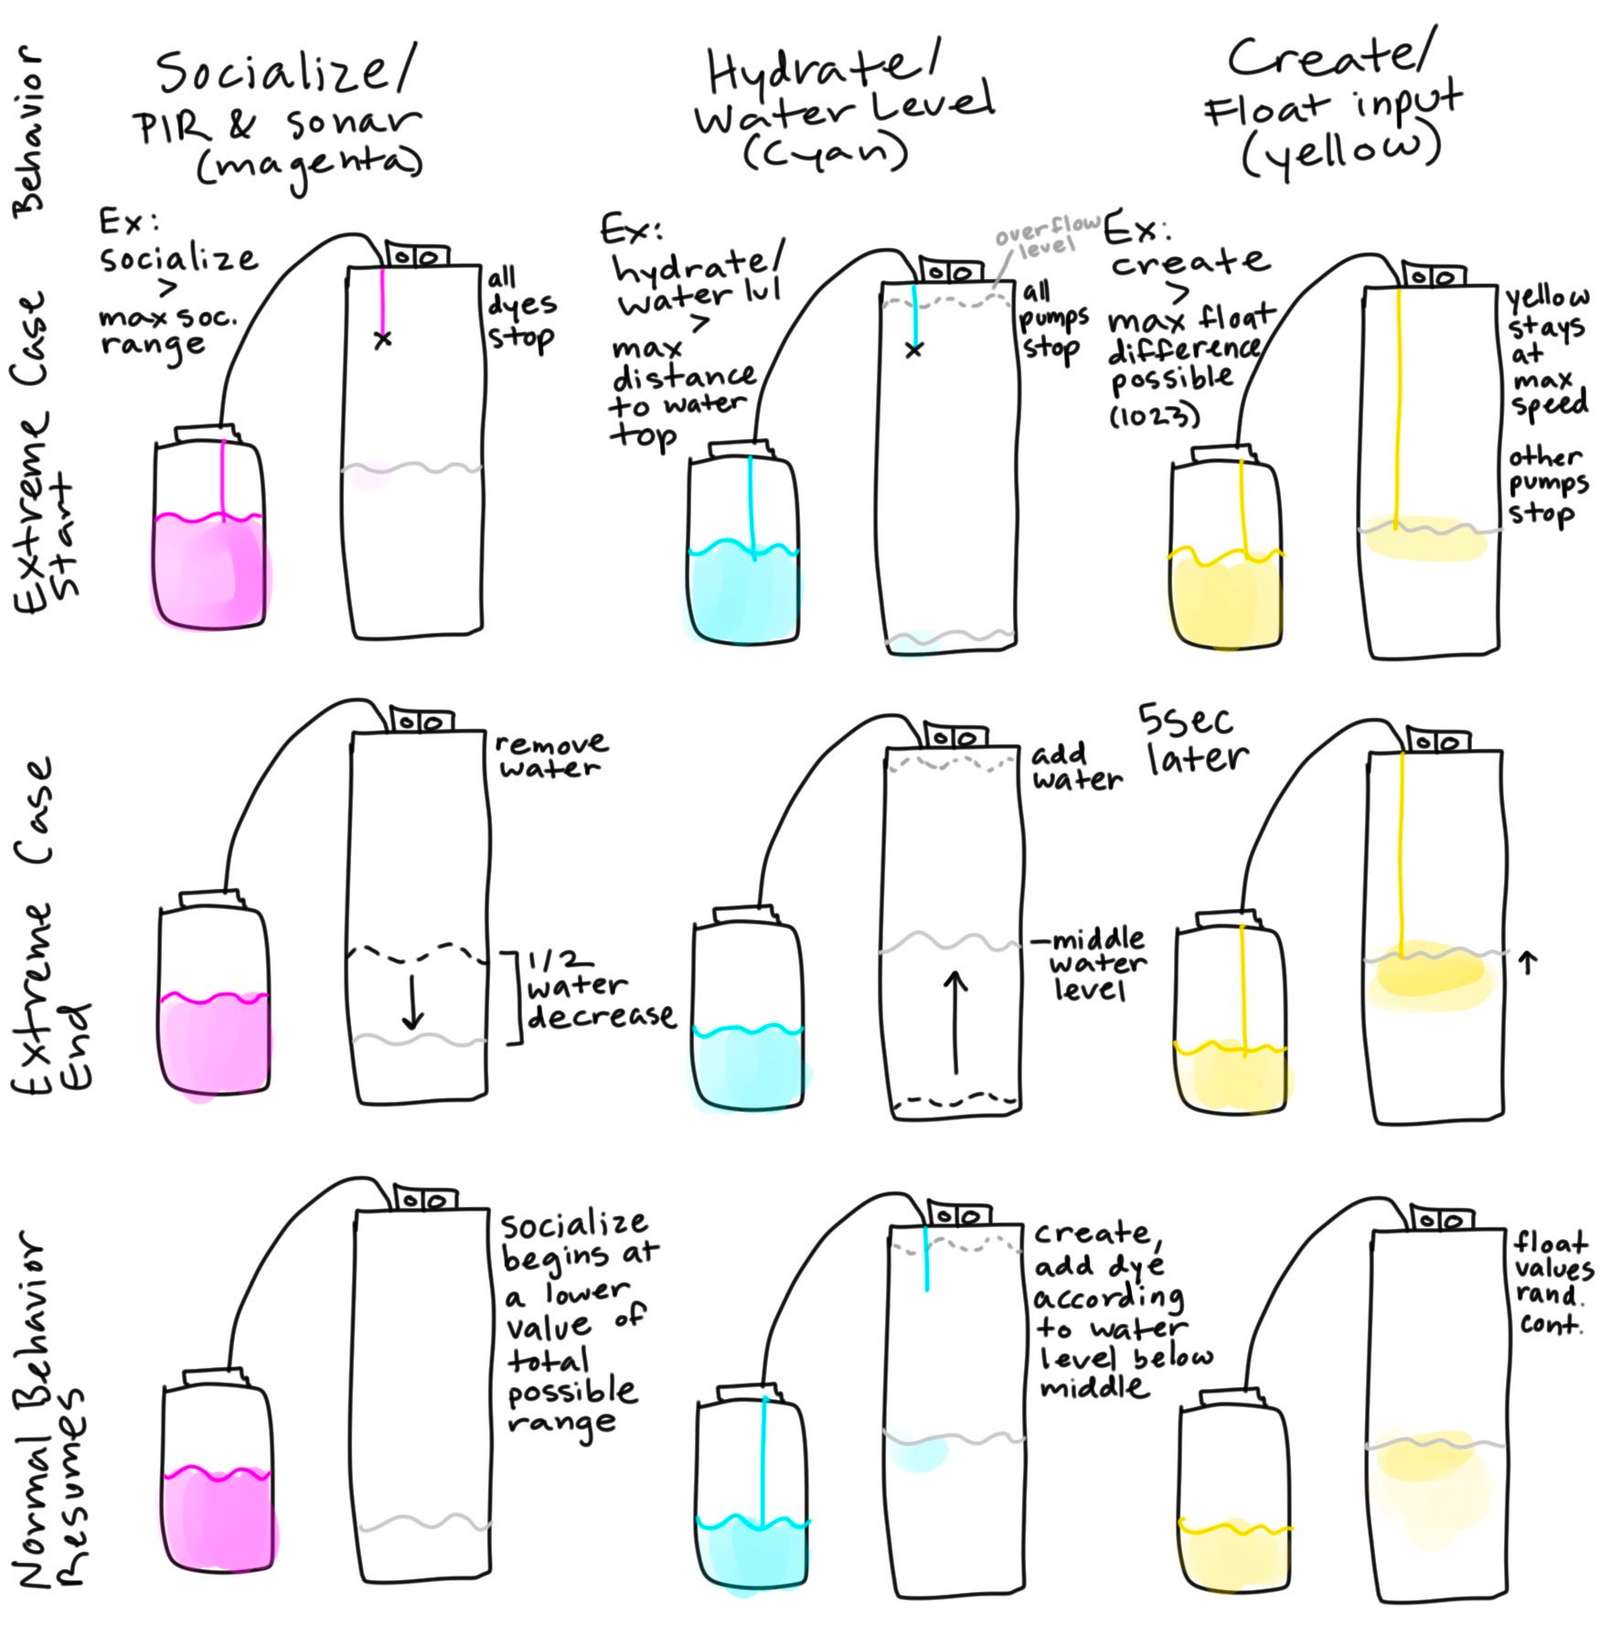 Behavior
Socialize/
PIR & sonar
(magenta)
Hydrate/
Water Level
(Cyan)
Create/
Float input
(yellow)
Extreme Case
Start
Ex:
socialize
>
max soc.
range
all
dyes
stop
Ex:
hydrate/
water lvl
>
max
distance
to water
top
overflow
level
all
pumps
stop
Ex:
create
>
max float
difference
possible
(1023)
yellow
stays
at
max
speed
other
pumps
stop
Extreme Case
End
remove
water
1/2
water
decrease
add
water
middle
water
level
5sec
later
Normal Behavior
Resumes
socialize
begins at
a lower
value of
total
possible
range
create,
add dye
according
to water
level below
middle
float
values
rand.
cont.